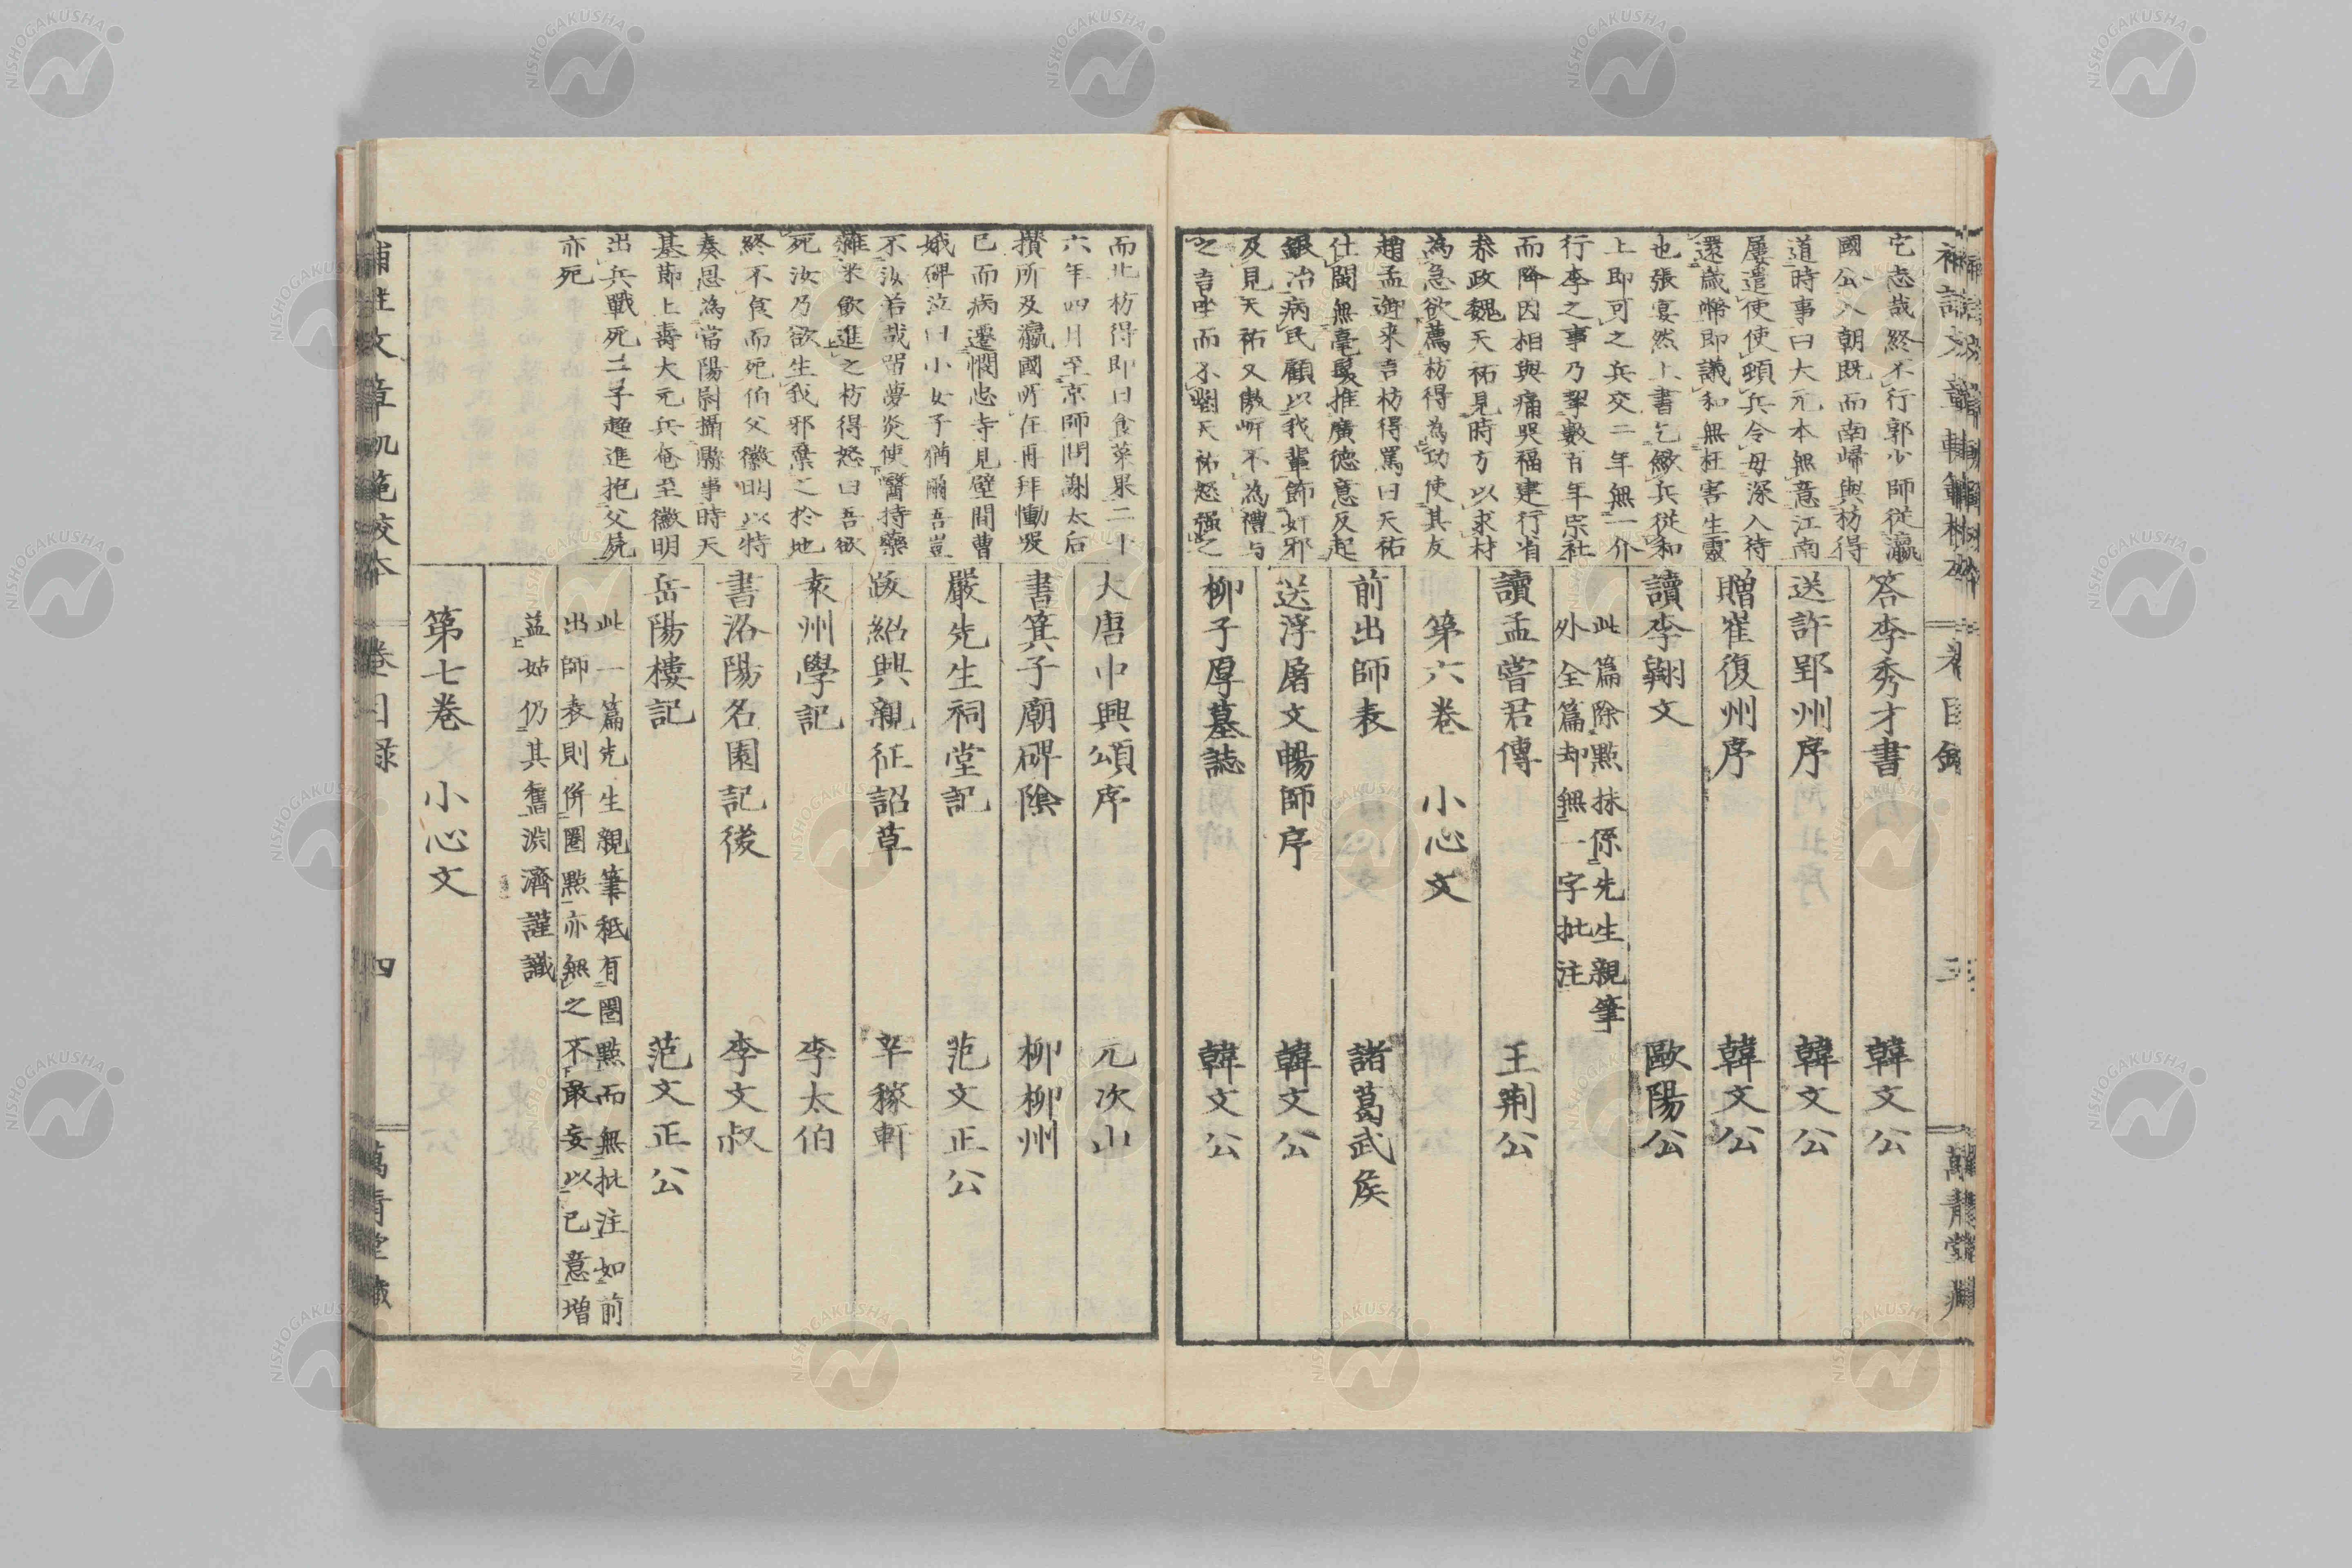 它志哉終不行郭少師從瀛
國公入朝既而南歸與枋得
道時事曰大元本無意江南
屢遣使使頓兵令毋深入待
還歲幣即議和無枉害生靈
也張宴然上書乞斂兵從和
上即可之兵交二年無一介
行李之事乃挈數百年宗社
而降因相與痛哭福建行省
參政魏天祐見時方以求材
為急欲薦枋得為功使其友
趙孟𨗿來言枋得罵曰天祐
仕閩無毫髮推廣德意反起
銀冶病民顧以我輩飾好邪
及見天祐又傲岸不為禮与
之言坐而不對天祐怒强之
答李秀才書 韓文公
送許郢州序 韓文公
贈崔復州序 韓文公
讀李翱文 歐陽公
此篇除點抹係先生親筆
外全篇却無一字批注
讀孟嘗君傳 王荆公
第六卷 小心文
前出師表 諸葛武侯
送浮屠文暢師序 韓文公
柳子厚墓誌 韓文公
而北枋得即日食菜果二十
六年四月至京師問謝太后
攅所及瀛國所在再拜慟哭
已而病遷憫忠寺見壁間曹
娥碑泣曰小女子猶爾吾豈
不汝若哉留夢炎使醫持藥
雜米飲進之枋得怒曰吾欲
死汝乃欲生我邪棄之於地
終不食而死伯父徽明以特
奏恩為當陽尉攝縣事時天
基節上壽大元兵奄至徽明
出兵戰死二子趨進抱父屍
亦死
大唐中興頌序 元次山
書箕子廟碑陰 柳柳州
嚴先生祠堂記 范文正公
跋紹興親征詔草 辛稼軒
袁州學記 李太伯
書洛陽名園記後 李文叔
岳陽樓記 范文正公
此一篇先生親筆秪有圈點而無批注如前
出師表則併圈點亦無之不敢妄以已意増
益姑仍其舊淵濟謹識
第七卷 小心文
補註文章軌範校本 卷目錄 四 萬青堂藏